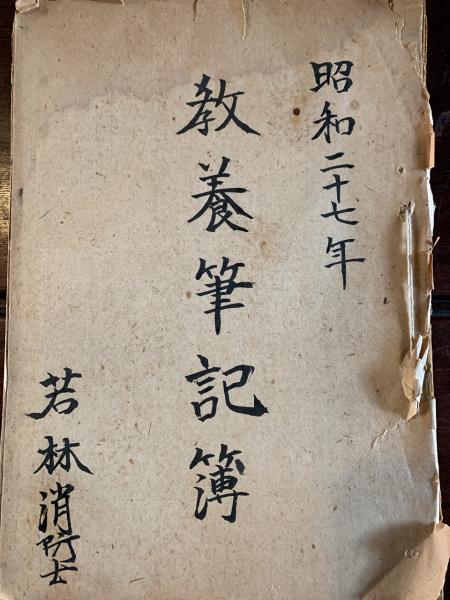 昭和二十七年
教養筆記簿
若林消防士